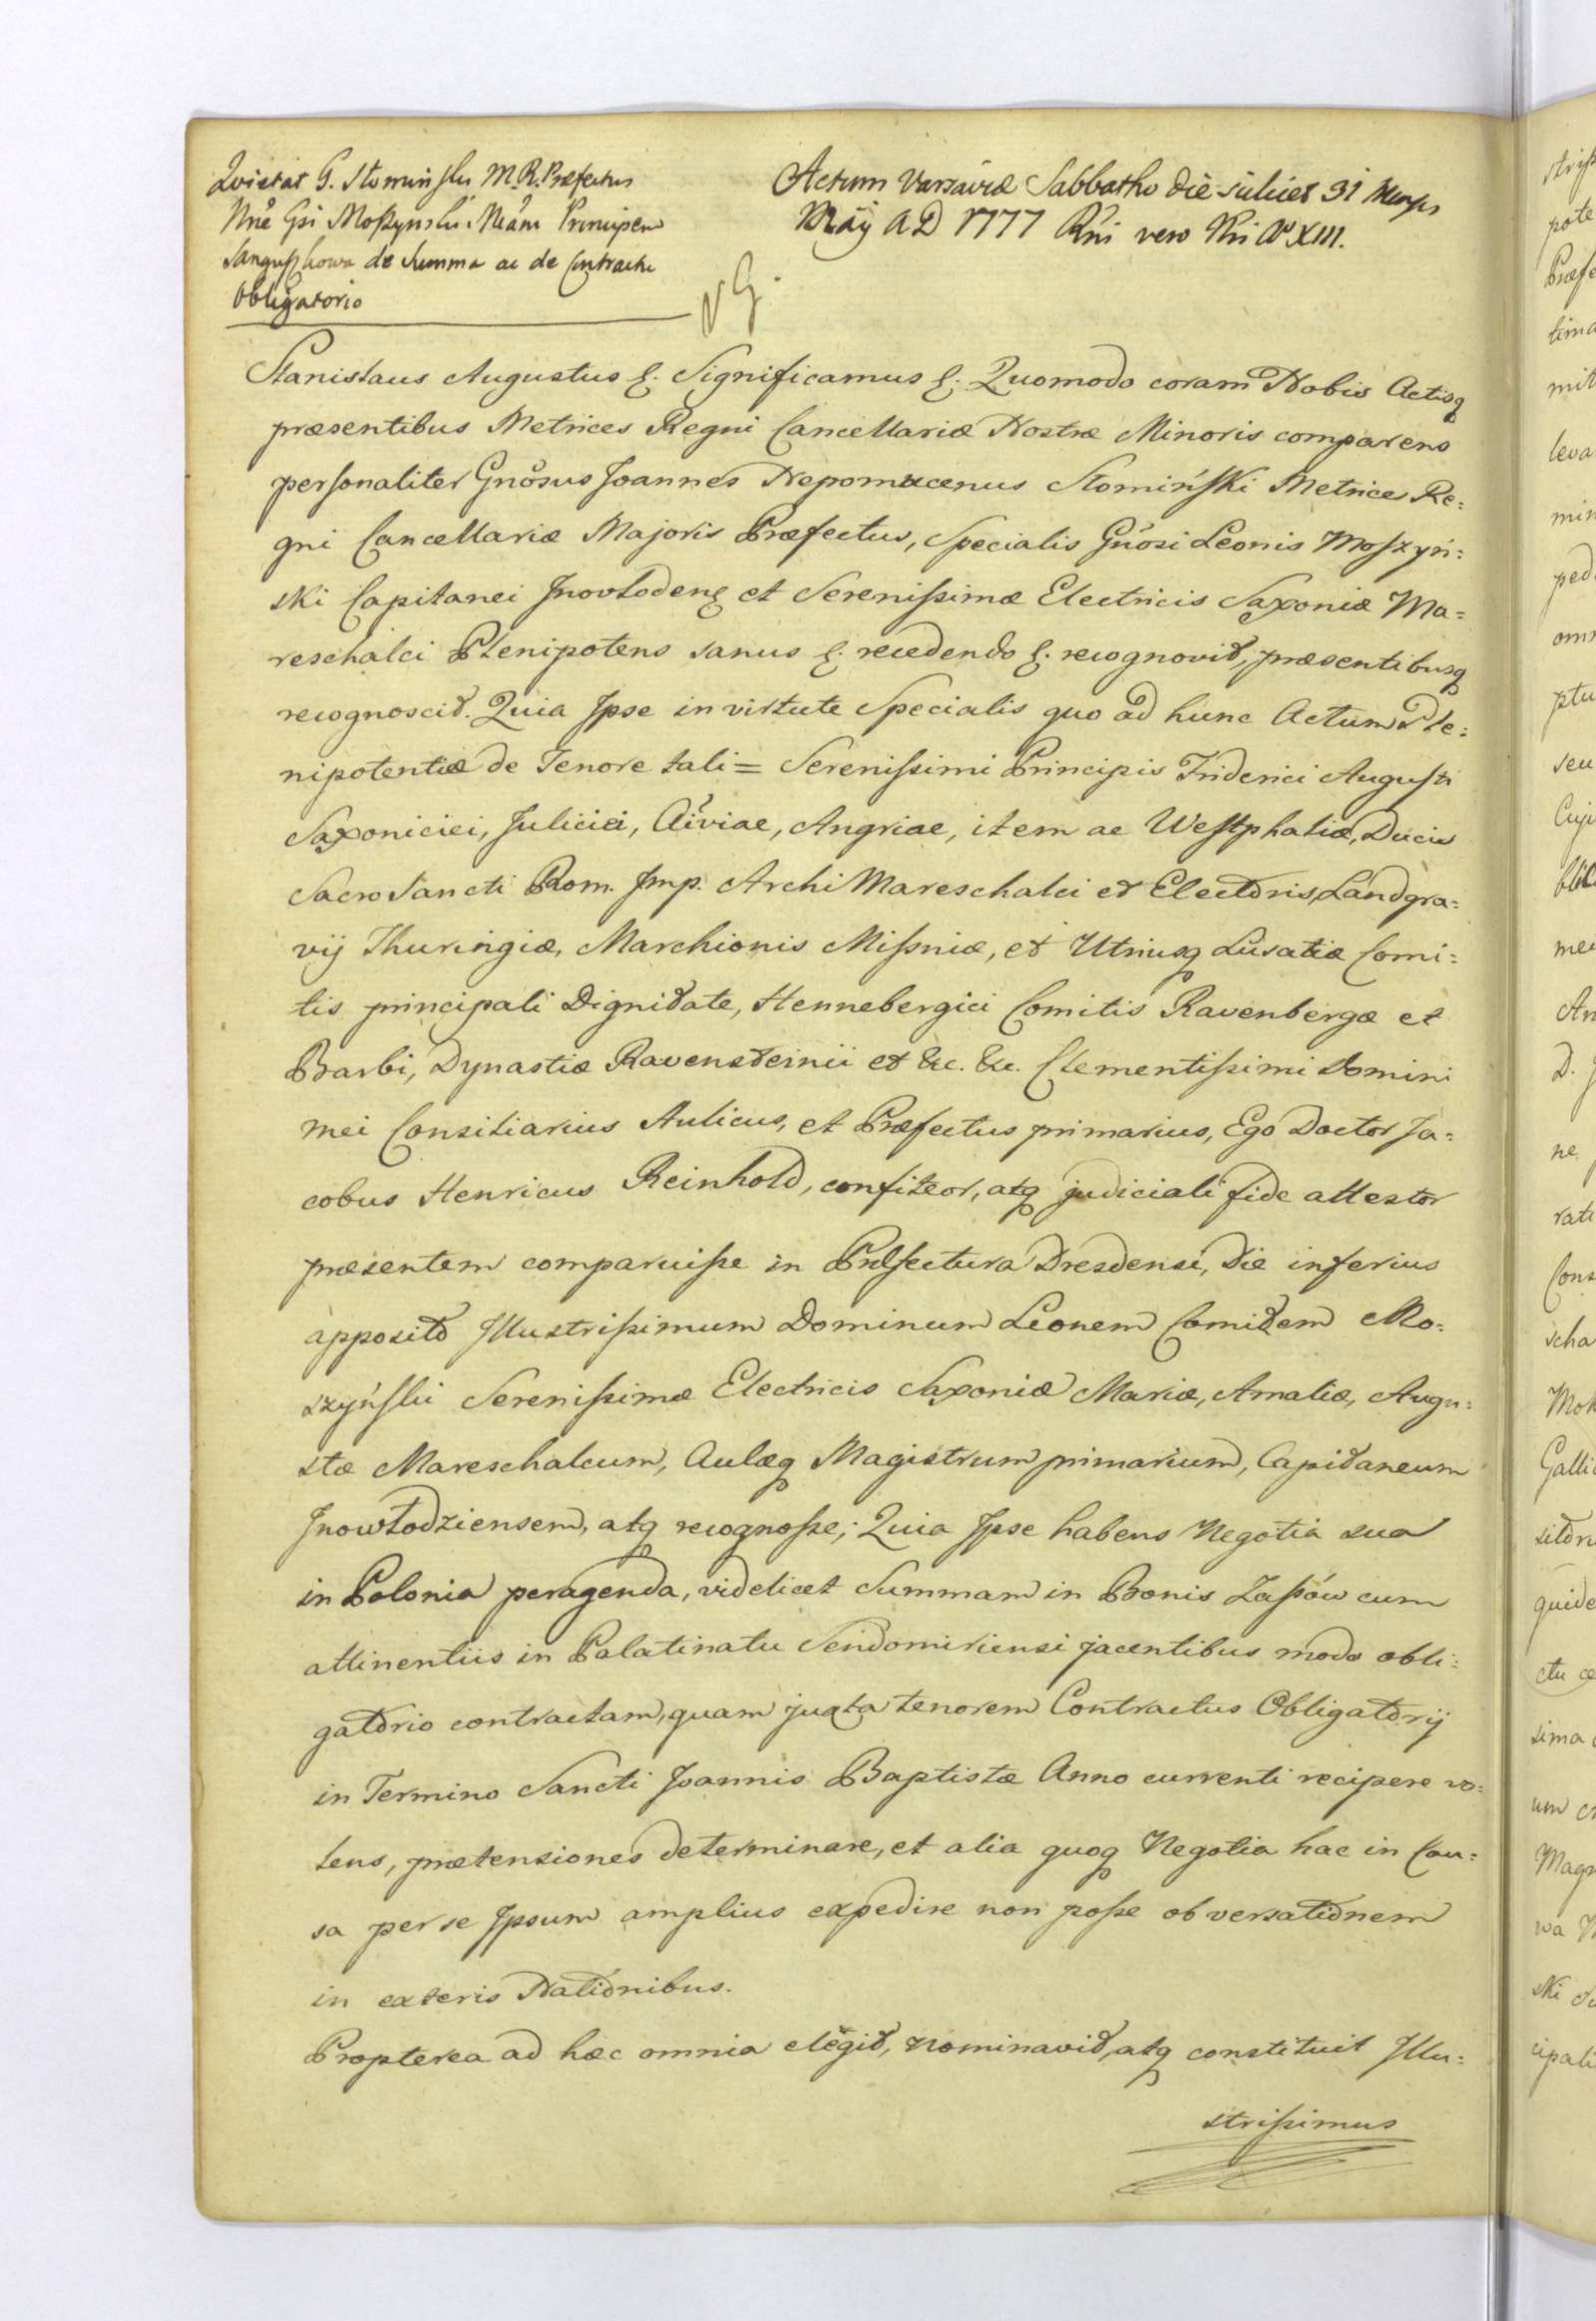 Qvietat G. Słomiński M. R. Præfectus
Nne Gsi Moszynski Mcam Principem
Sanguszkowa de Summa ac de Contractu
Obligatorio
Actum Varsaviæ Sabbatho die scilicet 31 Mensis
Maÿ A D 1777 Rni vero Nri Aº XIII.
Stanislaus Augustus &. Significamus &. Quomodo coram Nobis Actisq
præsentibus Metrices Regni Cancellariæ Nostræ Minoris comparens
personaliter Gnosus Joannes Nepomucenus Słomiński Metrices Re=
gni Cancellariæ Majoris Præfectus, Specialis Gnosi Leonis Moszyń=
ski Capitanei Jnovlodens et Serenissimæ Electricis Saxoniæ Ma=
reschalci Plenipotens sanus &. recedendo &. recognovit, præsentibusq
recognoscit. Quia Jpse in virtute Specialis quo ad hunc Actum Ple=
nipotentiæ de Tenore tali = Serenissimi Principis Friderici Augusti
Saxoniciei, Juliciei, Cliviae, Angriae, item ac Westphaliæ, Ducis
Sacro Sancti Rom. Jmp. Archi Mareschalci et Electoris, Landgra=
vij Thuringiæ, Marchionis Missniæ, et Utriusq Lusatiæ Comi=
tis principali Dignitate, Hennebergici Comitis Ravenbergæ et
Barbi, Dynastiæ Ravensteinii et &c. &c. Clementissimi Domini
mei Consiliarius Aulicus, et Præfectus primarius, Ego Doctor Ja=
cobus Henricus Reinhold, confiteor, atq judiciali fide attestor
præsentem comparuisse in Præfectura Dresdensi, Die inferius
apposito Jllustrissimum Dominum Leonem Comitem Mo=
szyński Serenissimæ Electricis Saxoniæ Mariæ, Amaliæ, Augu=
stæ Mareschalcum, Aulæq Magistrum primarium, Capitaneum
Jnowłodziensem, atq recognosse; Quia Jpse habens Negotia sua
in Polonia peragenda, videlicet Summam in Bonis Zassów cum
attinentiis in Palatinatu Sendomiriensi jacentibus modo obli=
gatorio contractam, quam juxta tenorem Contractus Obligatorij
in Termino Sancti Joannis Baptistæ Anno currenti recipere vo=
lens, prætensiones determinare, et alia quoq Negotia hac in Cau=
sa per se Jpsum amplius expedire non posse ob versationem
in exteris Nationibus.
Propterea ad hæc omnia elegit, nominavit, atq constituit Jllu=
strissimus